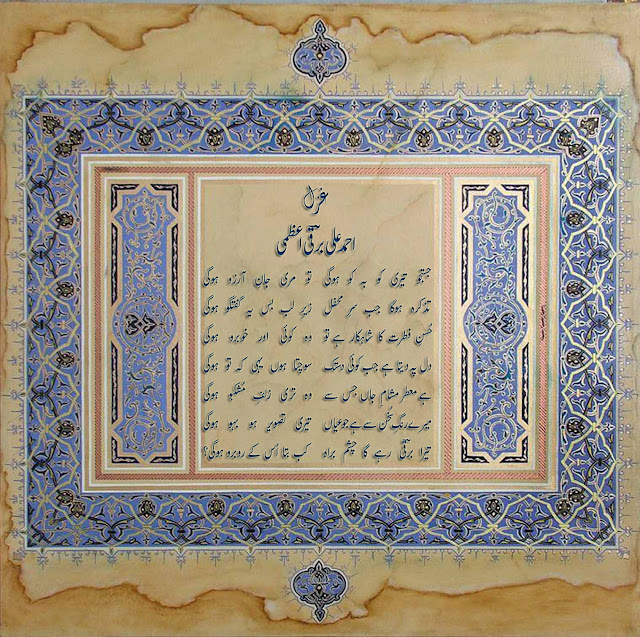 غزل
احمد علی برقیؔ اعظمی
جستجو تیری کو بہ کو ہوگی تو مری جانِ آرزو ہوگی
تذکرہ ہوگا جب سرِ محفل زیرِ لب بس یہ گفتگو ہوگی
حُسنِ فطرت کا شاہکار ہے تو وہ کوئی اور خوبرو ہوگی
دل پہ دیتا ہے جب کوئی دستک سوچتا ہوں یہی کہ تو ہوگی
ہے معطر مشامِ جاں جس سے وہ تری زلفِ مُشکبو ہوگی
میرے رنگِ سُخن سے ہے جو عیاں تیری تصویر ہو بہو ہوگی
تیرا برقیؔ رہے گا چشم براہ کب بتا اُس کے روبرو ہوگی؟